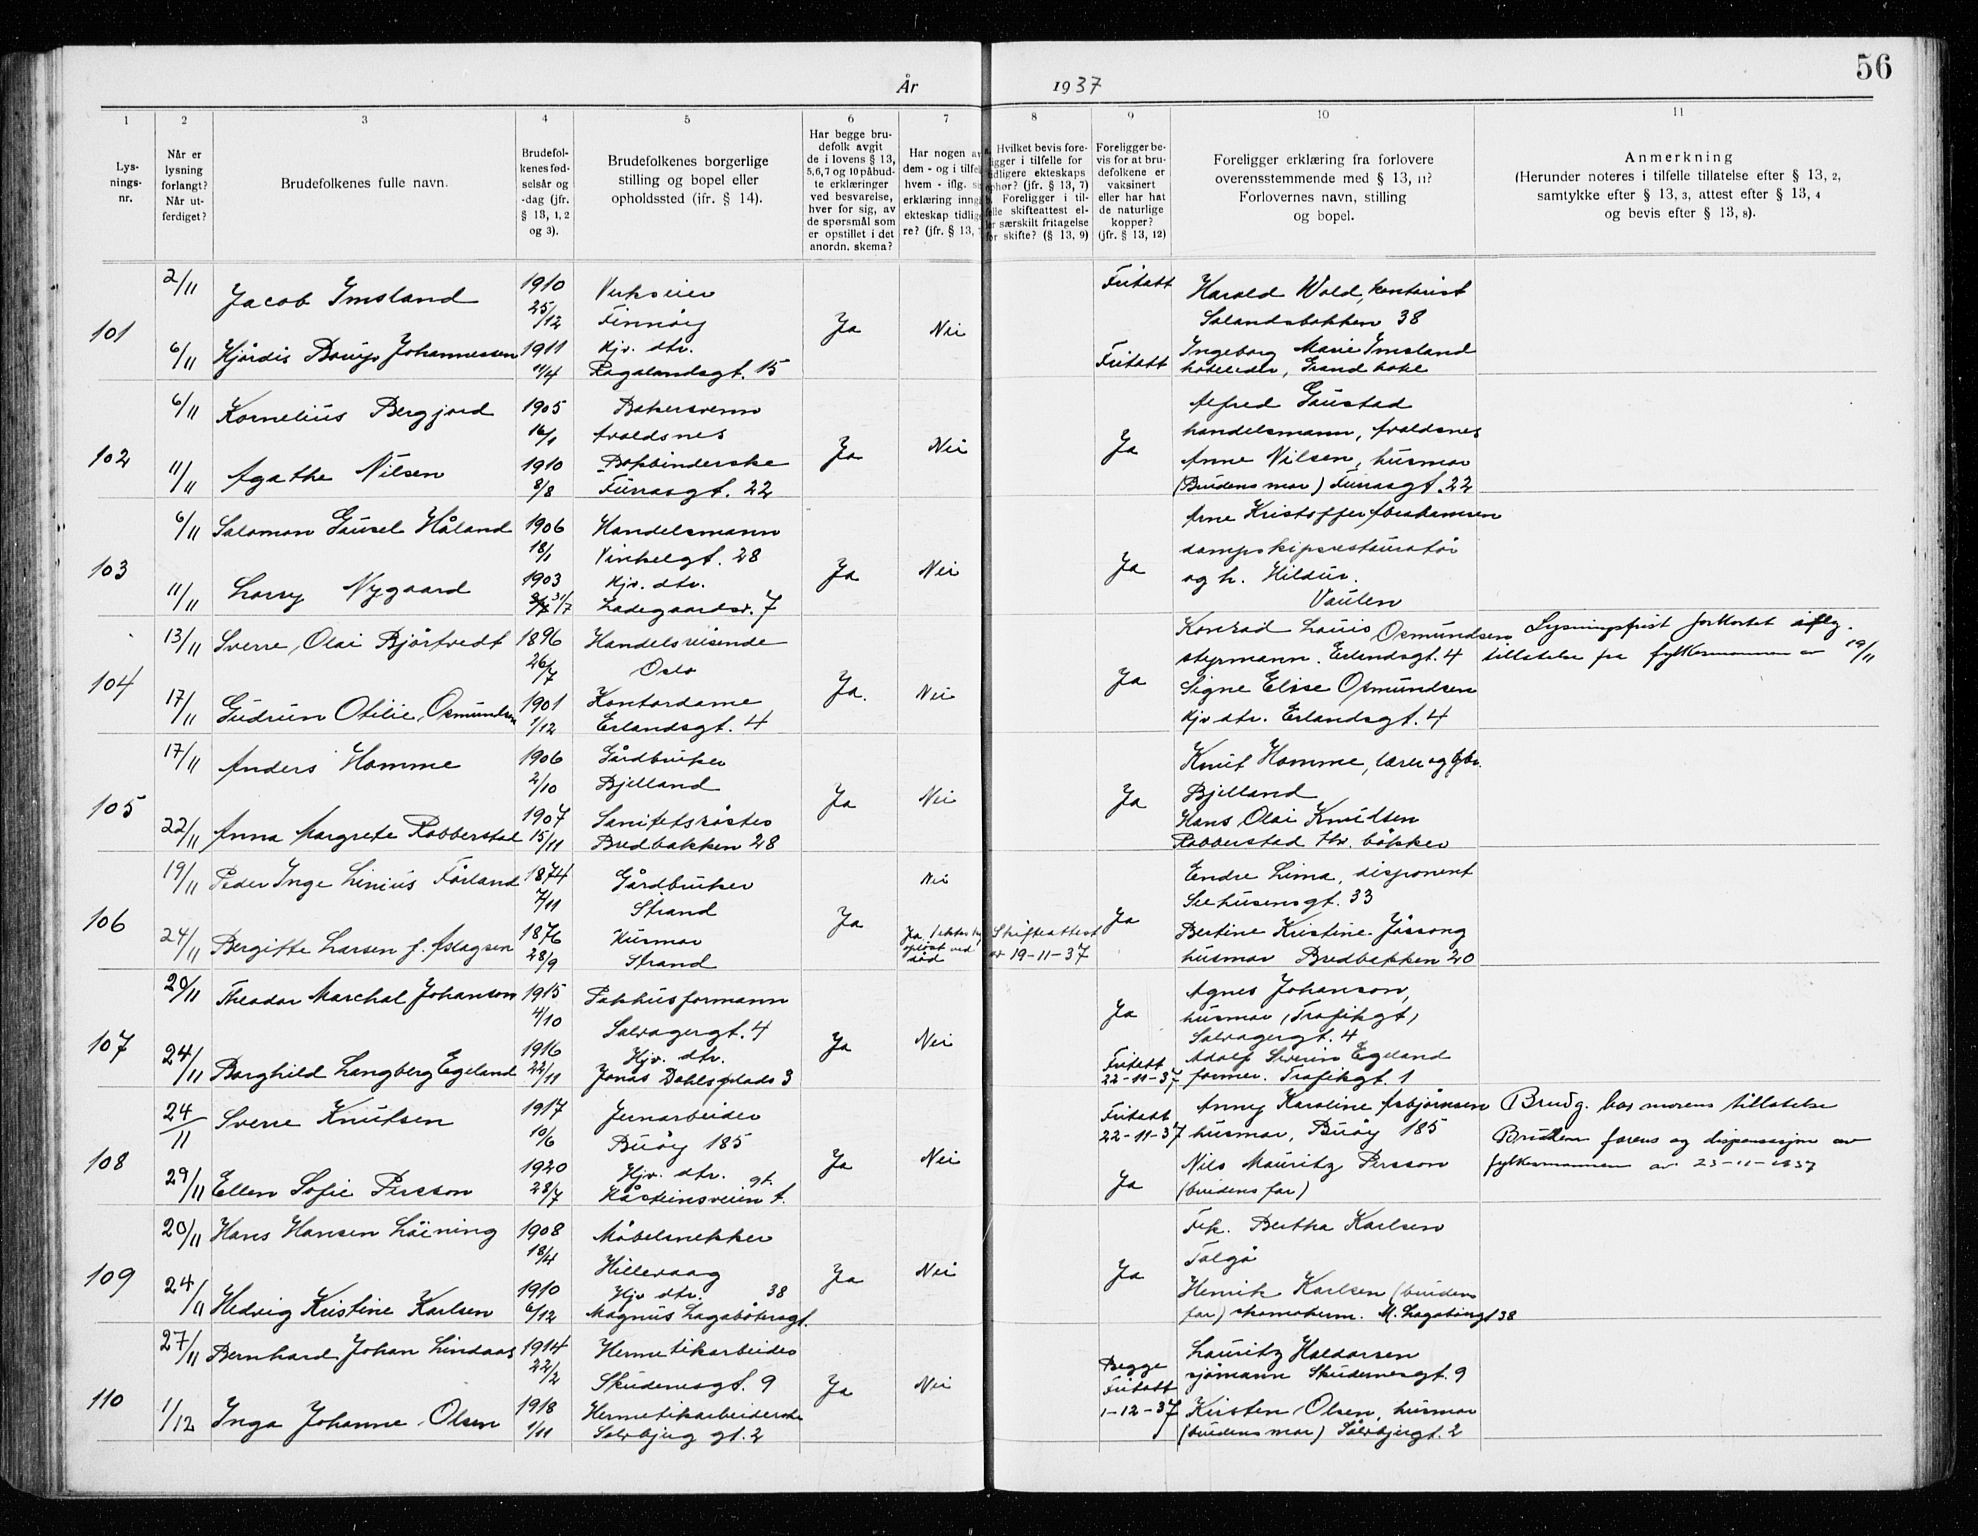 56
År 1937
1 2 3 4 5 6 7 8 9 10 11
Lys-
nings-
nr.
Når er
lysning
forlangt?
Når ut-
ferdiget?
Brudefolkenes fulle navn.
Brudefol-
kenes fød-
selsår og
-dag (jfr.
§ 13, 1, 2
og 3).
Brudefolkenes borgerlige
stilling og bopel eller
opholdssted (jfr. § 14).
Har begge bru-
defolk avgit
de i lovens § 13,
5,6,7 og 10 påbud-
te erklæringer
ved besvarelse,
hver for sig, av
de spørsmål som
er opstillet i det
anordn. skema?
Har nogen av
dem - og i tilfel
hvem - iflg. s
erklæring inng
ekteskap tidlig
re? (jfr. § 13,
Hvilket bevis fore-
ligger i tilfelle for
tidligere ekteskaps
ophør? (jfr. § 13, 7)
Foreligger i til-
felle skifteattest el-
ler særskilt fritagelse
for skifte? (§ 13, 9)
Foreligger be-
vis for at bru-
defolkene er
vaksinert
eller har hat
de naturlige
kopper?
(jfr. § 13, 12)
Foreligger erklæring fra forlovere
overensstemmende med § 13, 11?
Forlovernes navn, stilling
og bopel.
Anmerkning
(Herunder noteres i tilfelle tillatelse efter § 13, 2,
samtykke efter § 13, 3, attest efter § 13, 4
og bevis efter § 13, 8).
101
2/11 Jacob Imsland 1910 25/12 Verkseier Finnøy Ja Nei Fritatt Harald Wold, kontorist
Solandsbakken 38
6/11 Hjørdis Johannessen 1911 11/4 Hjv. dtr. Rogalandsgt. 15 Fritatt Ingeborg Marie Imsland
hoteleier, Grand hotel
102
6/11 Kornelius Bergjord 1905 16/1 Bakersvenn Avaldsnes Ja Nei Ja Alfred Gaustad
handelsmann, Avaldsnes
11/11 Agathe Nilsen 1910 8/8 Bokbinderske Furrasgt. 22 Anne Nilsen, husmor
(Brudens mor) Furrasgt. 22
103
6/11 Salomon Gausel Håland 1906 18/1 Handelsmann Vinkelgt. 28 Ja Nei Ja Arne Kristoffer Abrahamsen
dampskipsrestauratør
11/11 Larry Nygaard 1903 31/7 Hjv. dtr. Ladegaardsv. 7 og h. Hildur.
Vaulen
104
13/11 Sverre Olai Bjørtvedt 1896 26/7 Handelsreisende Oslo Ja. Nei Ja Konrad Louis Osmundsen
styrmann. Erlandsgt. 4
Lysningsfrist forkortet iflg.
tillatelse fra fylkesmannen av 19/11
17/11 Gudrun Otilie Osmundsen 1901 1/12 Kontordame Erlandsgt. 4 Signe Elise Osmundsen
Hjv dtr. Erlandsgt. 4
105
17/11 Anders Homme 1906 2/10 Gårdbruker Bjelland Ja Nei Ja Knut Homme, lærer og gbr.
Bjelland
22/11 Anna Margrete Robberstad 1907 15/11 Sanitetssøster Bredbakken 28 Hans Olai Knutsen
Robberstad Hv. bøkker
106
19/11 Peder Inge Linius Førland 1874 7/11 Gårdbruker Strand Ja Nei Ja Endre Lima, disponent
Seehusensgt. 33
24/11 Bergitte Larsen f. Aslagsen 1876 28/9 Husmor Strand Ja, 1 ekteskap
opløst ved
død Skifteattest
av 19-11-37 Bertine Kristine Jåssong
husmor Bredbakken 20
107
20/11 Theodor Marchal Johanson 1915 4/10 Pakhusformann Salvagergt. 4 Ja Nei Ja Agnes Johanson,
husmor, (Trafikgt)
Salvagergt. 4
24/11 Borghild Langberg Egeland 1916 22/11 Hjv. dtr. Jonas Dahls plads 3 Fritatt
22-11-37 Adolf Severin Egeland
former. Trafikgt. 1
108
24/11 Sverre Knutsen 1917 10/6 Jernarbeider Buøy 185 Ja Nei Fritatt
22-11-37 Anny Karoline Asbjørnsen
husmor, Buøy 185
Brudg. har morens tillatelse
Bruden farens og dispensasjon av
fylkesmannen av 23-11-1937
29/11 Ellen Sofie Persson 1920 28/7 Hjv. dtr. Håsteinsveien gt. 1. Ja Nils Mauritz Persson
(brudens far)
109
20/11 Hans Hansen Løining 1908 18/4 Møbelsnekker Hillevaag Ja Nei Ja Frk. Bertha Karlsen
Talgø
24/11 Hedvig Kristine Karlsen 1910 6/12 Hjv dtr. 38
Magnus Lagabøtersgt. Henrik Karlsen (brudens
far) skomakerm. M. Lagabøtergt 38
110
27/11 Bernhard Johan Lindaas 1914 22/2 Hermetikarbeider Skudenesgt. 9 Ja Nei Begge
Fritatt
1-12-37 Lauritz Haldorsen
sjømann Skudenesgt. 9
1/12 Inga Johanne Olsen 1918 1/11 Hermetikarbeiderske Solvbjerg gt. 2 Kirsten Olsen, husmor
(brudens mor) Sølvbjergt. 2